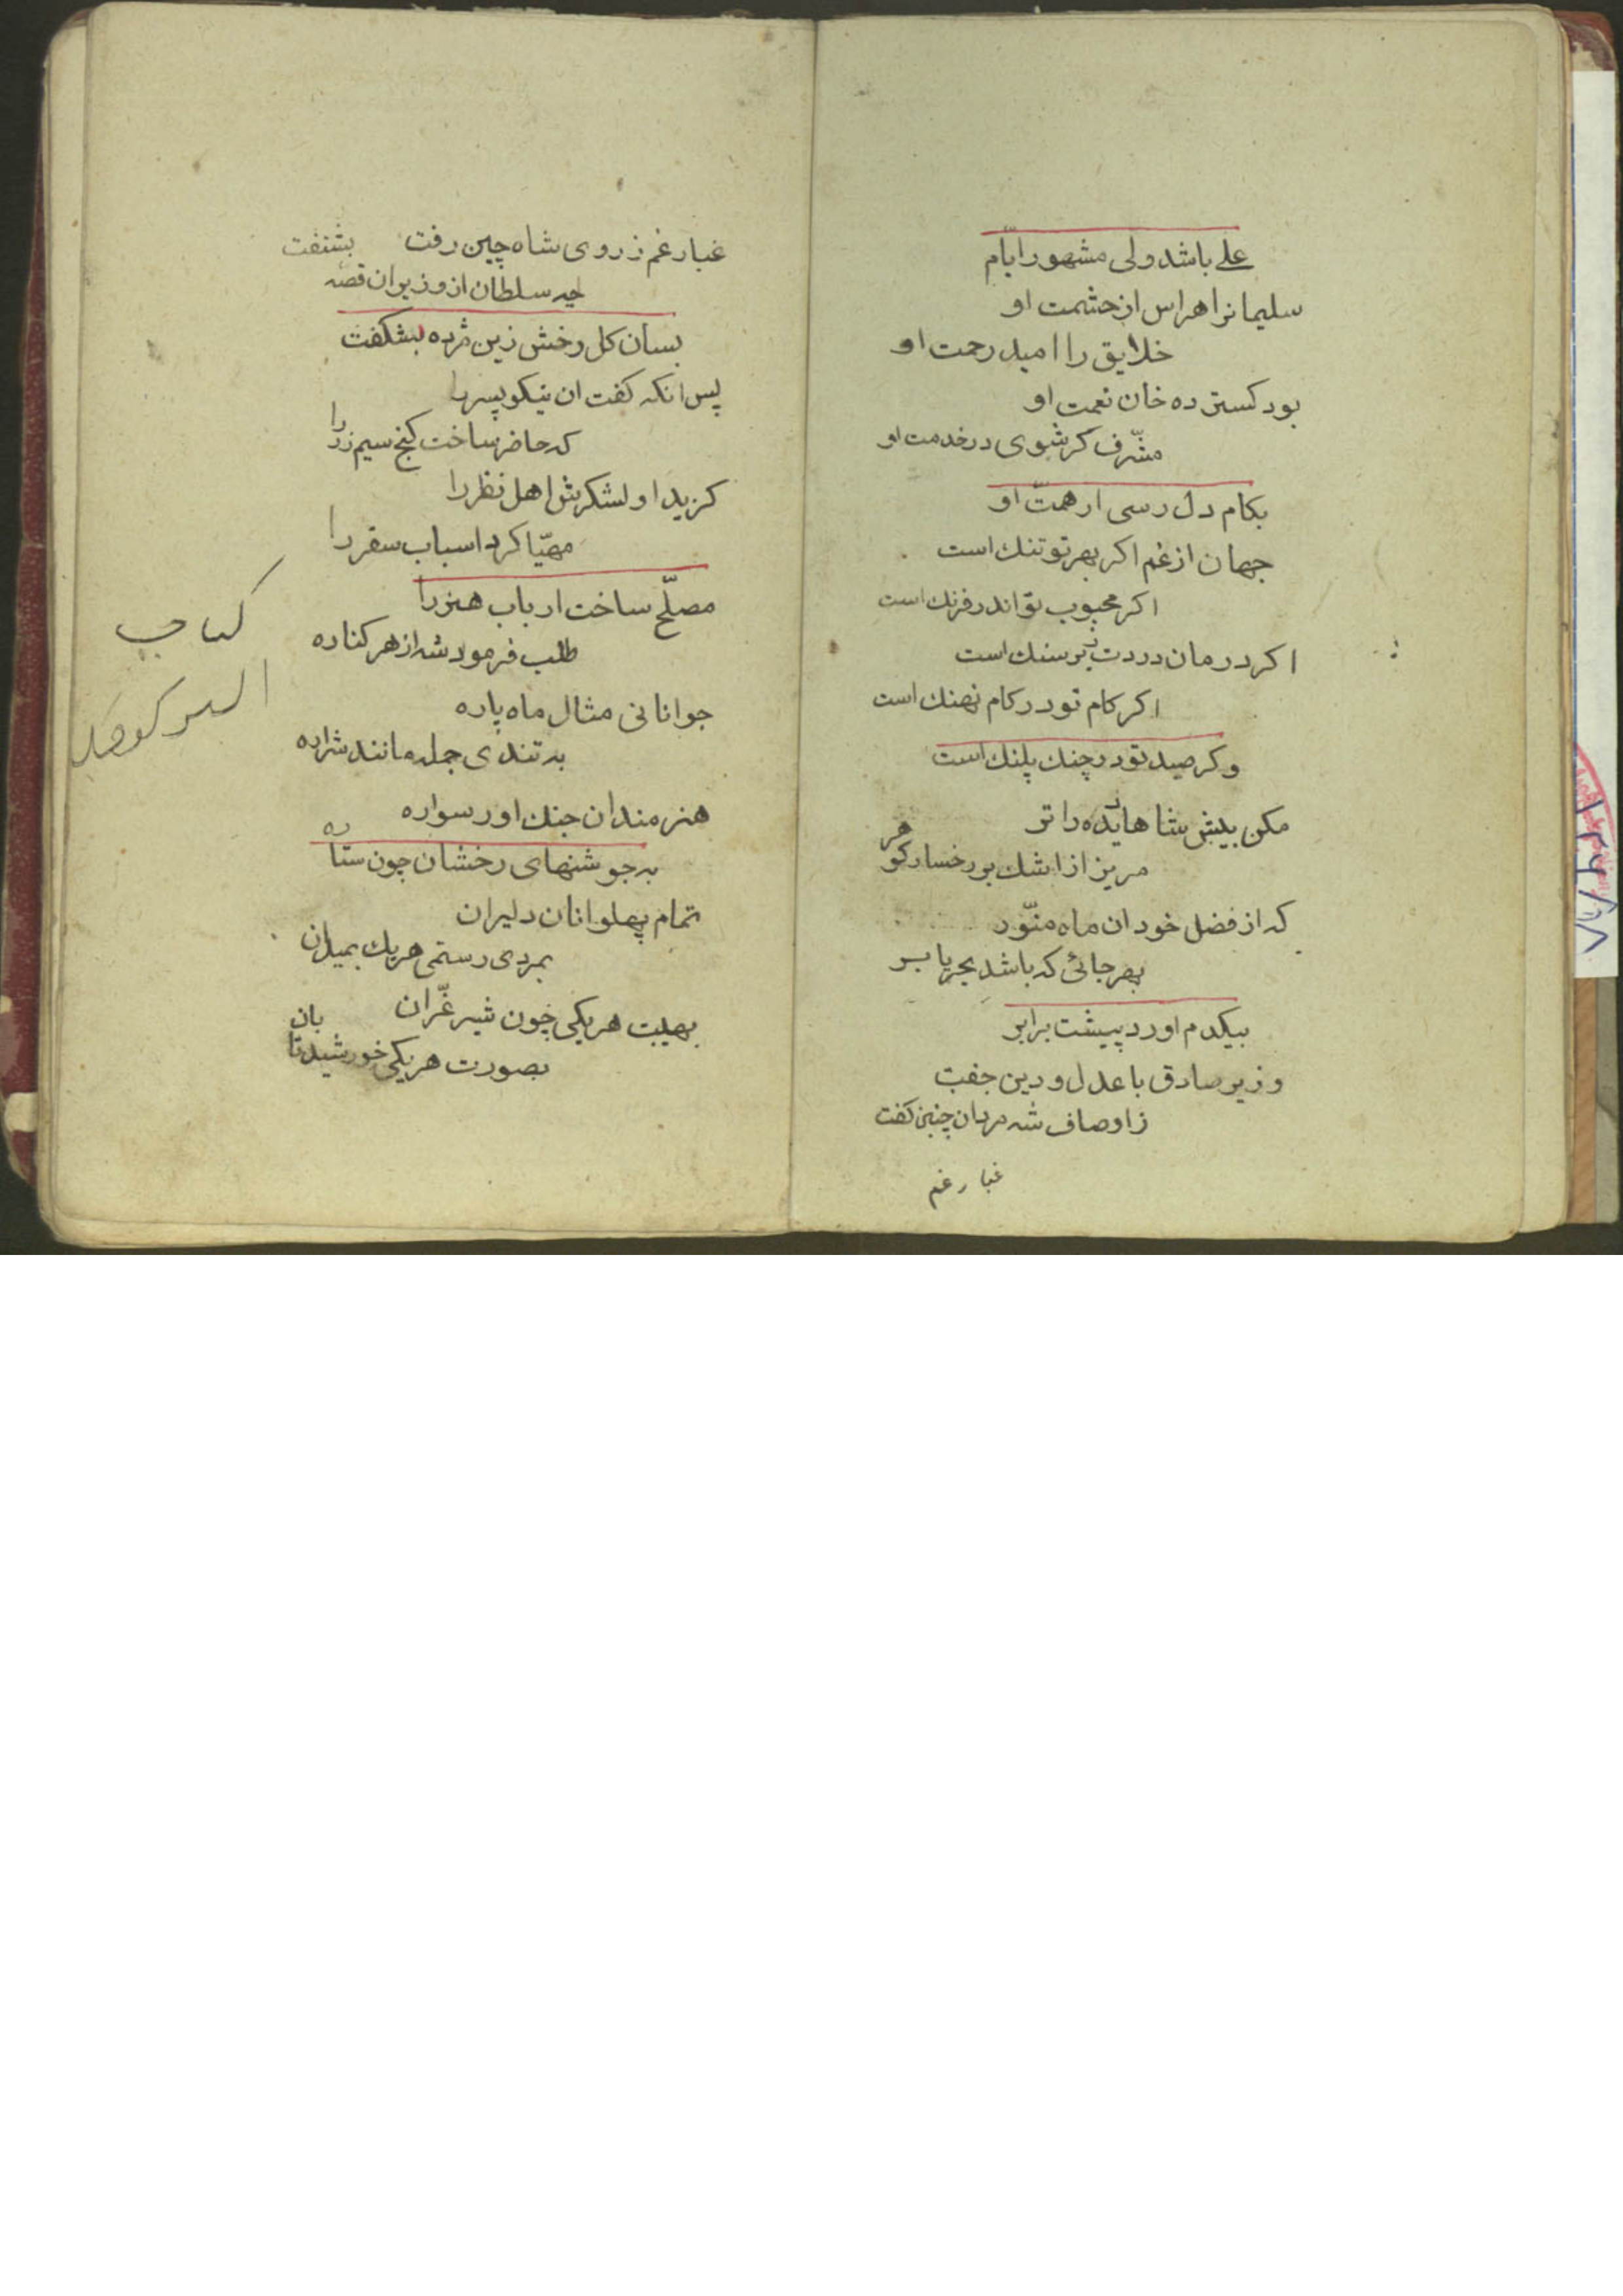 علے باشد ولی مشهور ایّام
سلیمانرا هراس از حشمت او
خلایق را امید رحمت او
بود کسترده خان نعمت او
مشّرف کر شوی در خدمت او
بکام دل رسی ار همتّ او
جهان از غم اکر بهر تو تنك است
اکر محبوب تو اندر فرنك است
اکر درمان دردت بر سنك است
اکر کام تو در کام نهنك است
وکر صید تو در چنك پلنك است
مکن بیش شاها دیده را تر
مریز از اشك بر رخسار کوهر
که از فضل خود ان ماه منّور
بهر جائی که باشد بحر یا بر
بیکدم اورد پیشت برابر
وزیر صادق با عدل و دین جفت
ز اوصاف شه مردان چنین کفت
غبار غم
غبار غم ز روی شاه چین رفت
چه سلطان از وزیر ان قصه بشنفت
بسان کل رخش زین مژده بشکفت
پس انکه کفت ان نیکو سیر را
که حاضر ساخت کنج سیم زر را
کزید او لشکرش اهل نظر را
مهیّا کرد اسباب سفر را
مصلّح ساخت ارباب هنر را
طلب فرمود شه از هر کناره
جوانانی مثال ماه پاره
به تندی جمله مانند شراره
هنرمندان جنك اور سواره
به جوشنهای رخشان چون ستاره
تمام پهلوانان دلیران
بمردی رستمی هریك بمیدان
بهیبت هریکی چون شیر غّران
بصورت هریکی خورشید تابان
کتاب